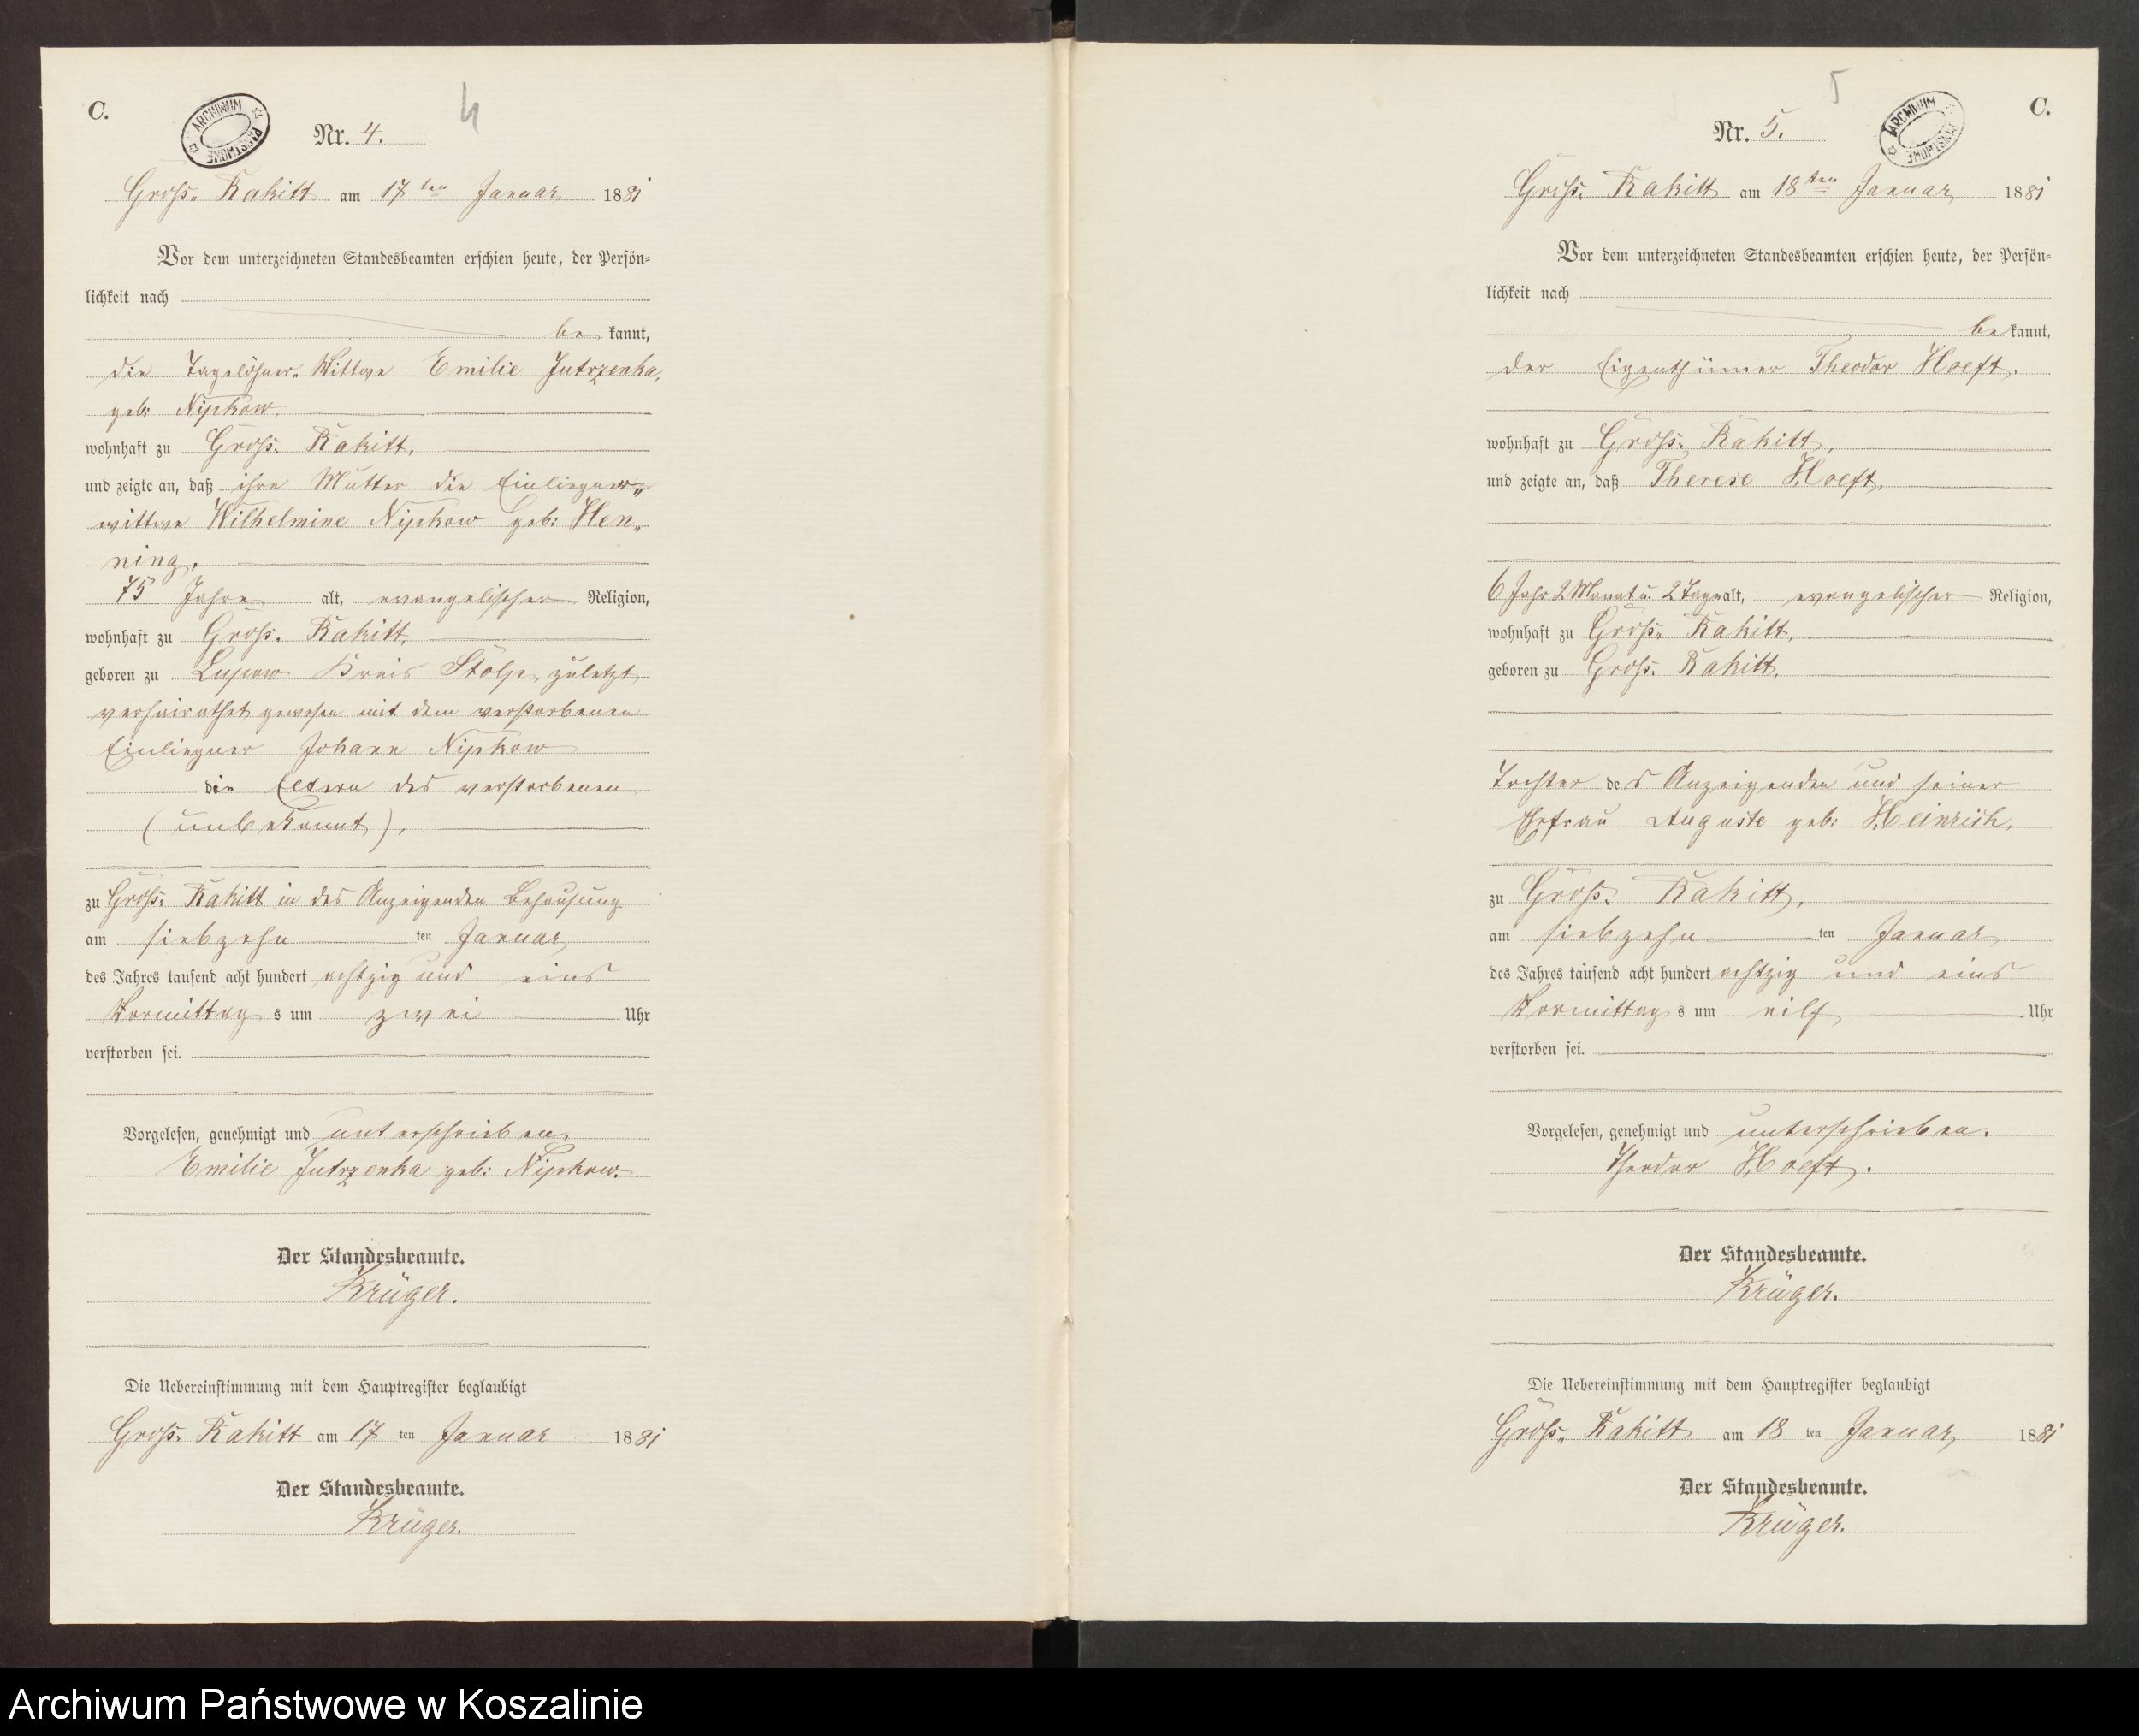 C.
ARCHIWUM PAŃSTWOWE
4
Nr. 4.
Groß- Rakitt am 17ten Januar 1881
Vor dem unterzeichneten Standesbeamten erschien heute, der Persön-
lichkeit nach
be kannt,
die Tagelöhner- Wittwe Emilie Jutrzenka,
geb: Nipkow.
wohnhaft zu Groß- Rakitt,
und zeigte an, daß ihre Mutter die Einliegner-
wittwe Wilhelmine Nipkow geb: Hen-
ning,
75 Jahre alt, evangelischer Religion,
wohnhaft zu Groß- Rakitt,
geboren zu Lupow Kreis Stolp, zuletzt
verheirathet gewesen mit dem verstorbenen
Einliegner Johann Nipkow
die Eltern des verstorbenen
(unbekannt),
zu Groß- Rakitt in des Anzeigenden Behausung
am siebzehn ten Januar
des Jahres tausend acht hundert achtzig und eins
Vormittag s um zwei Uhr
verstorben sei.
Vorgelesen, genehmigt und unterschrieben.
Emilie Jutrzenka geb: Nipkow.
Der Standesbeamte.
Krüger.
Die Uebereinstimmung mit dem Hauptregister beglaubigt
Groß- Rakitt am 17 ten Januar 1881
Der Standesbeamte.
Krüger.
5
C.
ARCHIWUM PAŃSTWOWE
Nr. 5.
Groß- Rakitt am 18ten Januar 1881
Vor dem unterzeichneten Standesbeamten erschien heute, der Persön-
lichkeit nach
be kannt,
der Eigenthümer Theodor Hoeft.
wohnhaft zu Groß- Rakitt,
und zeigte an, daß Therese Hoeft,
6 Jahr 2 Monat u. 2 Tage alt, evangelischer Religion,
wohnhaft zu Groß- Rakitt,
geboren zu Groß- Rakitt,
Tochter des Anzeigenden und seiner
Ehefrau Auguste geb: Heinrich,
zu Groß- Rakitt,
am siebzehn ten Januar
des Jahres tausend acht hundert achtzig und eins
Vormittag s um eilf Uhr
verstorben sei.
Vorgelesen, genehmigt und unterschrieben.
Theodor Hoeft.
Der Standesbeamte.
Krüger.
Die Uebereinstimmung mit dem Hauptregister beglaubigt
Groß- Rakitt am 18 ten Januar 1881
Der Standesbeamte.
Krüger.
Archiwum Państwowe w Koszalinie